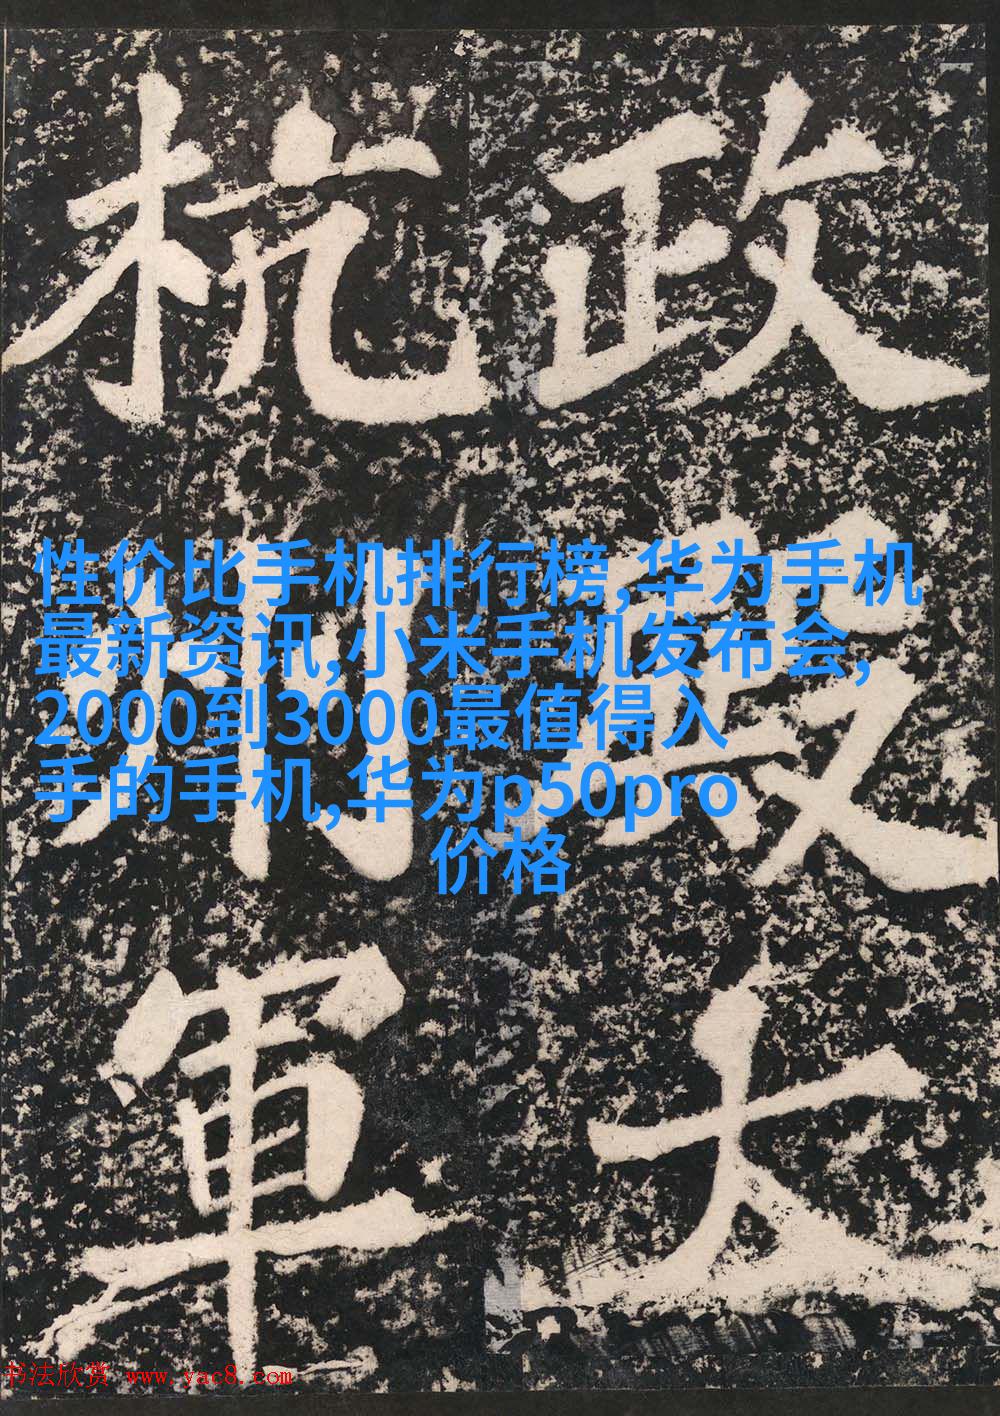 政殿大
杭州軍
性价比手机排行榜,华为手机
最新资讯,小米手机发布会,
2000到3000最值得入
手的手机,华为p50pro
价格
书法欣赏 www.yac8.com